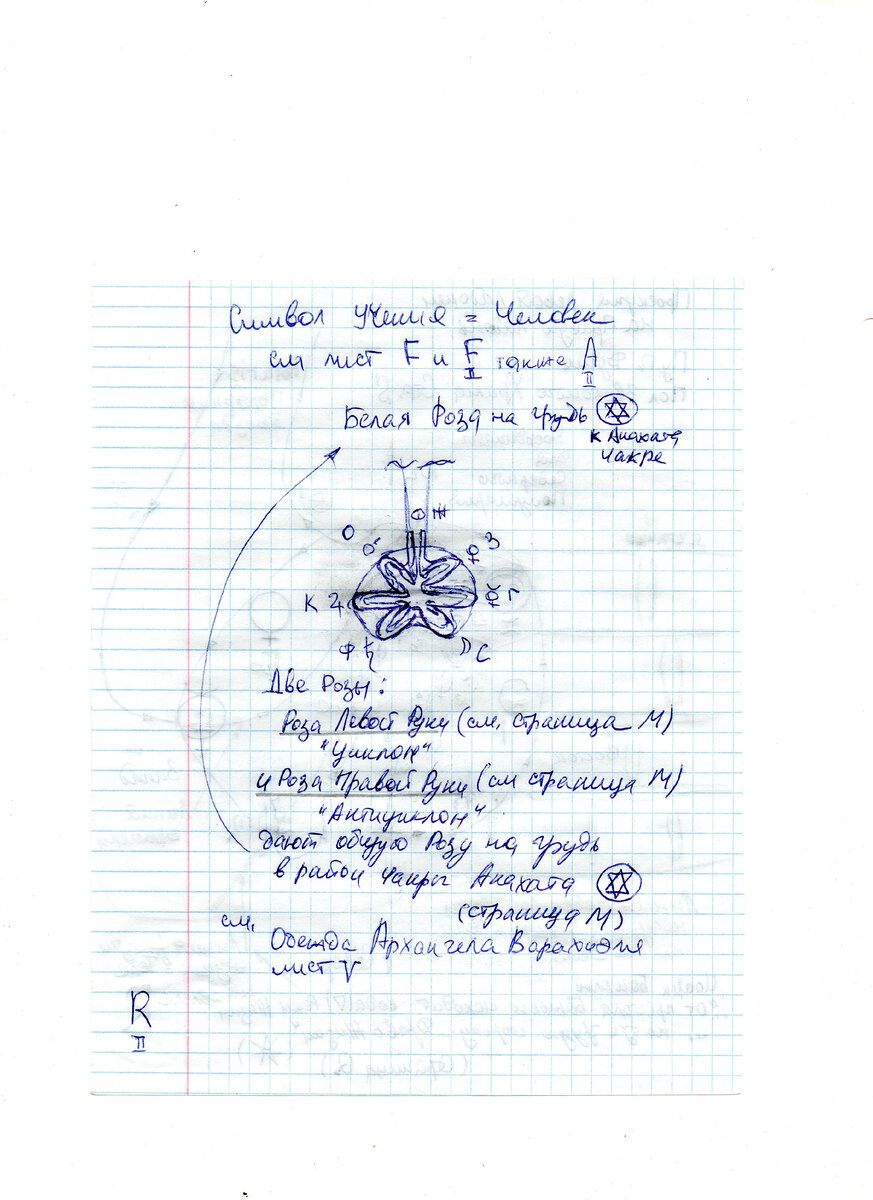 Символ Учения = Человек
см лист F и F также A
II II
Белая Роза на грудь
к Анахата
чакре
Ж
О З
К Г
Ф С
Две Розы:
Роза Левой Руки (см. страница М)
"Циклон"
и Роза Правой Руки (см страница М)
"Антициклон"
дают общую Розу на грудь
в район чакры Анахата
(страница М)
см.
Одежда Архангела Варахиэля
лист V
R
II